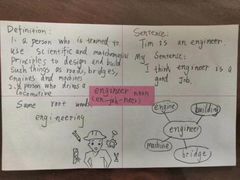 Definition:
1. A person who is trained to
use scientific and mathematical
principles to design and build
such things as roads, bridges,
engines and machines
2. A person who drives a
locomotive
Same root words:
engineering
Sentence:
Tim is an engineer.
My Sentence:
I think engineer is a
good job.
engineer noun
engine
building
engineer
machine
bridge